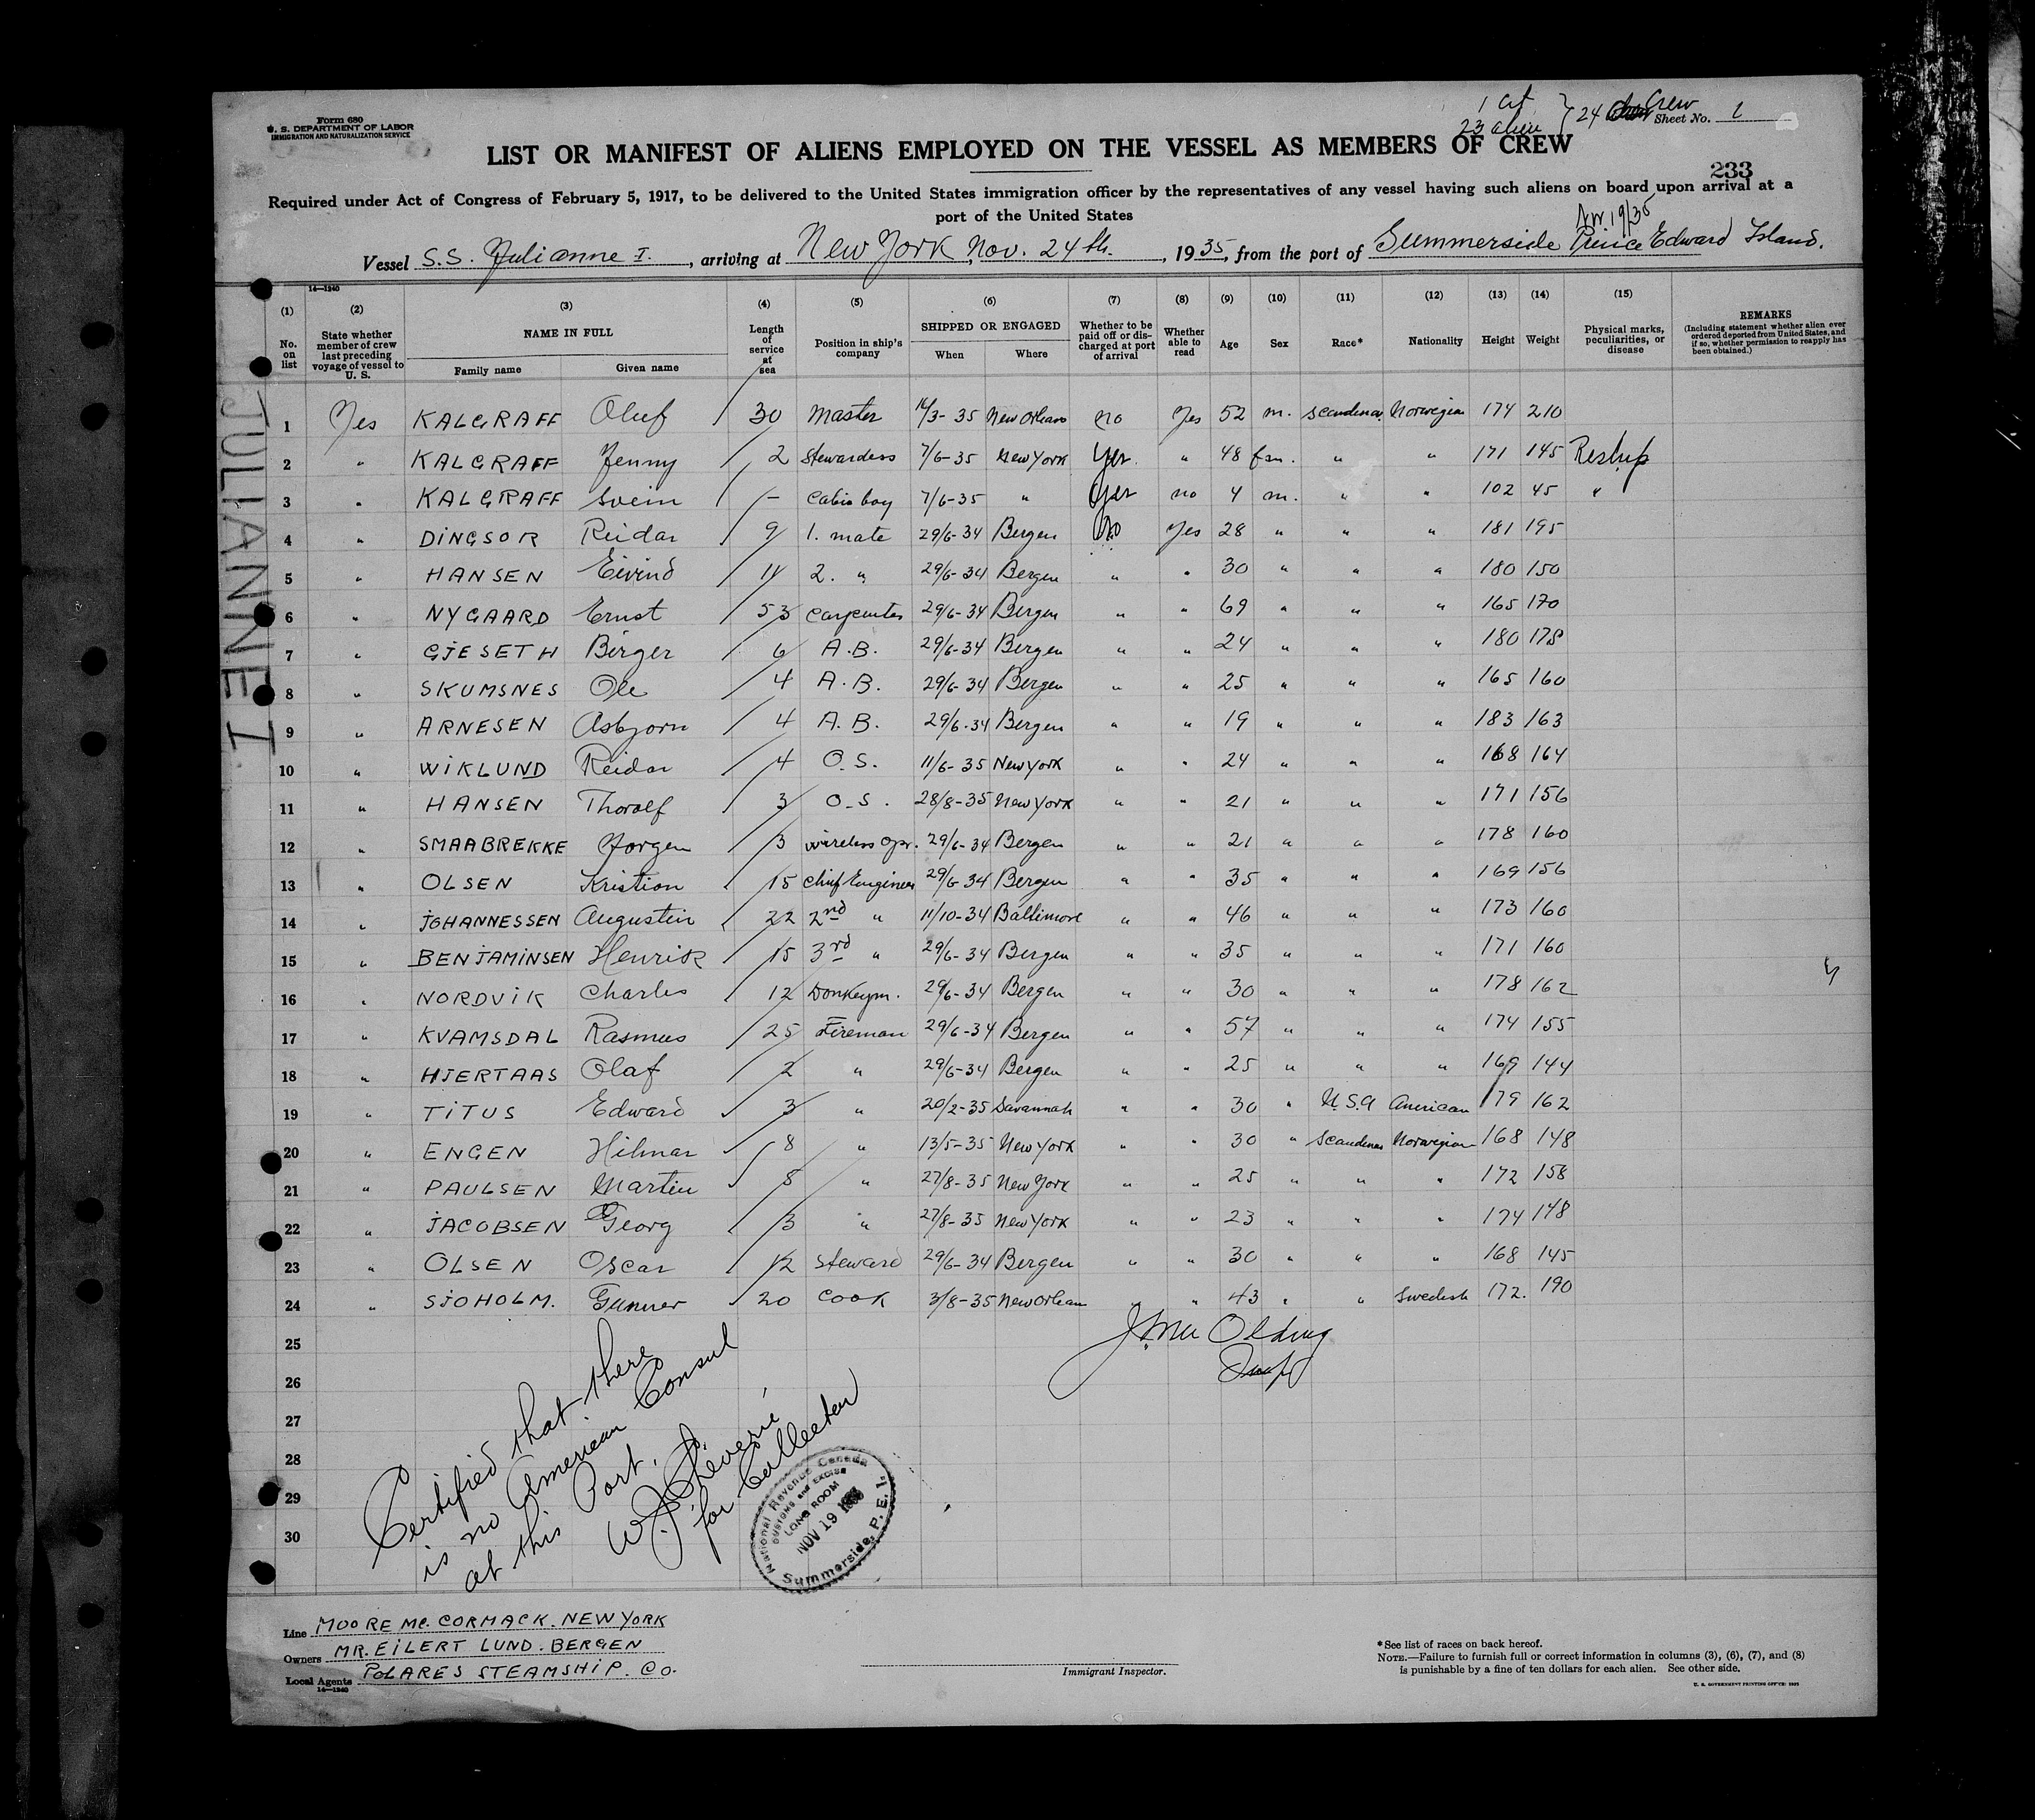 Form 680
U. S. DEPARTMENT OF LABOR
IMMIGRATION AND NATURALIZATION SERVICE
1 cit
23 alien } 24 Crew
Sheet No. 1
LIST OR MANIFEST OF ALIENS EMPLOYED ON THE VESSEL AS MEMBERS OF CREW
233
Required under Act of Congress of February 5, 1917, to be delivered to the United States immigration officer by the representatives of any vessel having such aliens on board upon arrival at a
port of the United States
Nov 19/35
Vessel S.S. Julianne I., arriving at New York, Nov. 24th, 1935, from the port of Summerside Prince Edward Island.
14—1240
(1) (2) (3) (4) (5) (6) (7) (8) (9) (10) (11) (12) (13) (14) (15)
No. on list
State whether member of crew last preceding voyage of vessel to U. S.
NAME IN FULL
Family name Given name
Length of service at sea
Position in ship's company
SHIPPED OR ENGAGED
When Where
Whether to be paid off or discharged at port of arrival
Whether able to read
Age Sex Race* Nationality Height Weight
Physical marks, peculiarities, or disease
REMARKS
(Including statement whether alien ever ordered deported from United States, and if so, whether permission to reapply has been obtained.)
1 Yes KALGRAFF Oluf 30 Master 14/3-35 New Orleans no Yes 52 m. Scandinav. Norwegian 174 210
2 " KALGRAFF Jenny 2 Stewardess 7/6-35 New York Yes " 48 fm. " " 171 145
3 " KALGRAFF Svein - Cabin boy 7/6-35 " Yes no 4 m. " " 102 45 "
4 " DINGSOR Reidar 9 1. mate 29/6-34 Bergen No Yes 28 " " " 181 195
5 " HANSEN Eivind 14 2. " 29/6-34 Bergen " " 30 " " " 180 150
6 " NYGAARD Ernst 53 Carpenter 29/6-34 Bergen " " 69 " " " 165 170
7 " GJESETH Birger 6 A.B. 29/6-34 Bergen " " 24 " " " 180 178
8 " SKUMSNES Ole 4 A.B. 29/6-34 Bergen " " 25 " " " 165 160
9 " ARNESEN Asbjorn 4 A.B. 29/6-34 Bergen " " 19 " " " 183 163
10 " WIKLUND Reidar 4 O.S. 11/6-35 New York " " 24 " " " 168 164
11 " HANSEN Thoralf 3 O.S. 28/8-35 New York " " 21 " " " 171 156
12 " SMAABREKKE Jorgen 3 wireless opr. 29/6-34 Bergen " " 21 " " " 178 160
13 " OLSEN Kristion 15 Chief Engineer 29/6-34 Bergen " " 35 " " " 169 156
14 " JOHANNESSEN Augustin 22 2nd " 11/10-34 Baltimore " " 46 " " " 173 160
15 " BENJAMINSEN Henrik 15 3rd " 29/6-34 Bergen " " 35 " " " 171 160
16 " NORDVIK Charles 12 Donkeym. 29/6-34 Bergen " " 30 " " " 178 162
17 " KVAMSDAL Rasmus 25 Fireman 29/6-34 Bergen " " 57 " " " 174 155
18 " HJERTAAS Olaf 2 " 29/6-34 Bergen " " 25 " " " 169 144
19 " TITUS Edward 3 " 20/2-35 Savannah " " 30 " U.S.A American 179 162
20 " ENGEN Hilmar 8 " 13/5-35 New York " " 30 " Scandinav Norwegian 168 148
21 " PAULSEN Martin 8 " 27/8-35 New York " " 25 " " " 172 158
22 " JACOBSEN Georg 3 " 27/8-35 New York " " 23 " " " 174 148
23 " OLSEN Oscar 12 Steward 29/6-34 Bergen " " 30 " " " 168 145
24 " SJOHOLM. Gunner 20 Cook 3/8-35 New Orlean " " 43 " " Swedish 172. 190
25
26
27
28
29
30
JULIANNE I
Certified that there
is no American Consul
at this Port.
for Collector
National Revenue Canada
Customs and Excise
LONG ROOM
NOV 19 1935
Summerside, P. E. I.
Line MOORE Mc. CORMACK. NEW YORK
Owners MR. EILERT LUND. BERGEN
Local Agents POLARES STEAMSHIP. Co.
14—1240
Immigrant Inspector.
*See list of races on back hereof.
NOTE.—Failure to furnish full or correct information in columns (3), (6), (7), and (8)
is punishable by a fine of ten dollars for each alien. See other side.
U. S. GOVERNMENT PRINTING OFFICE: